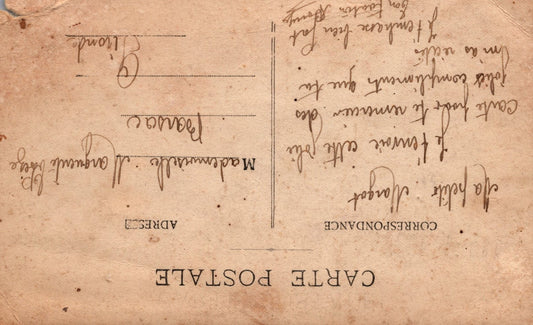 CARTE POSTALE
CORRESPONDANCE
ADRESSE
Ma petite Margot
je t'envoie cette jolie
carte pour te remercier des
jolis compliments que tu
m'as récité
Je t'embrasse bien fort
ton
Mademoiselle Marguerite
Barsac
Gironde